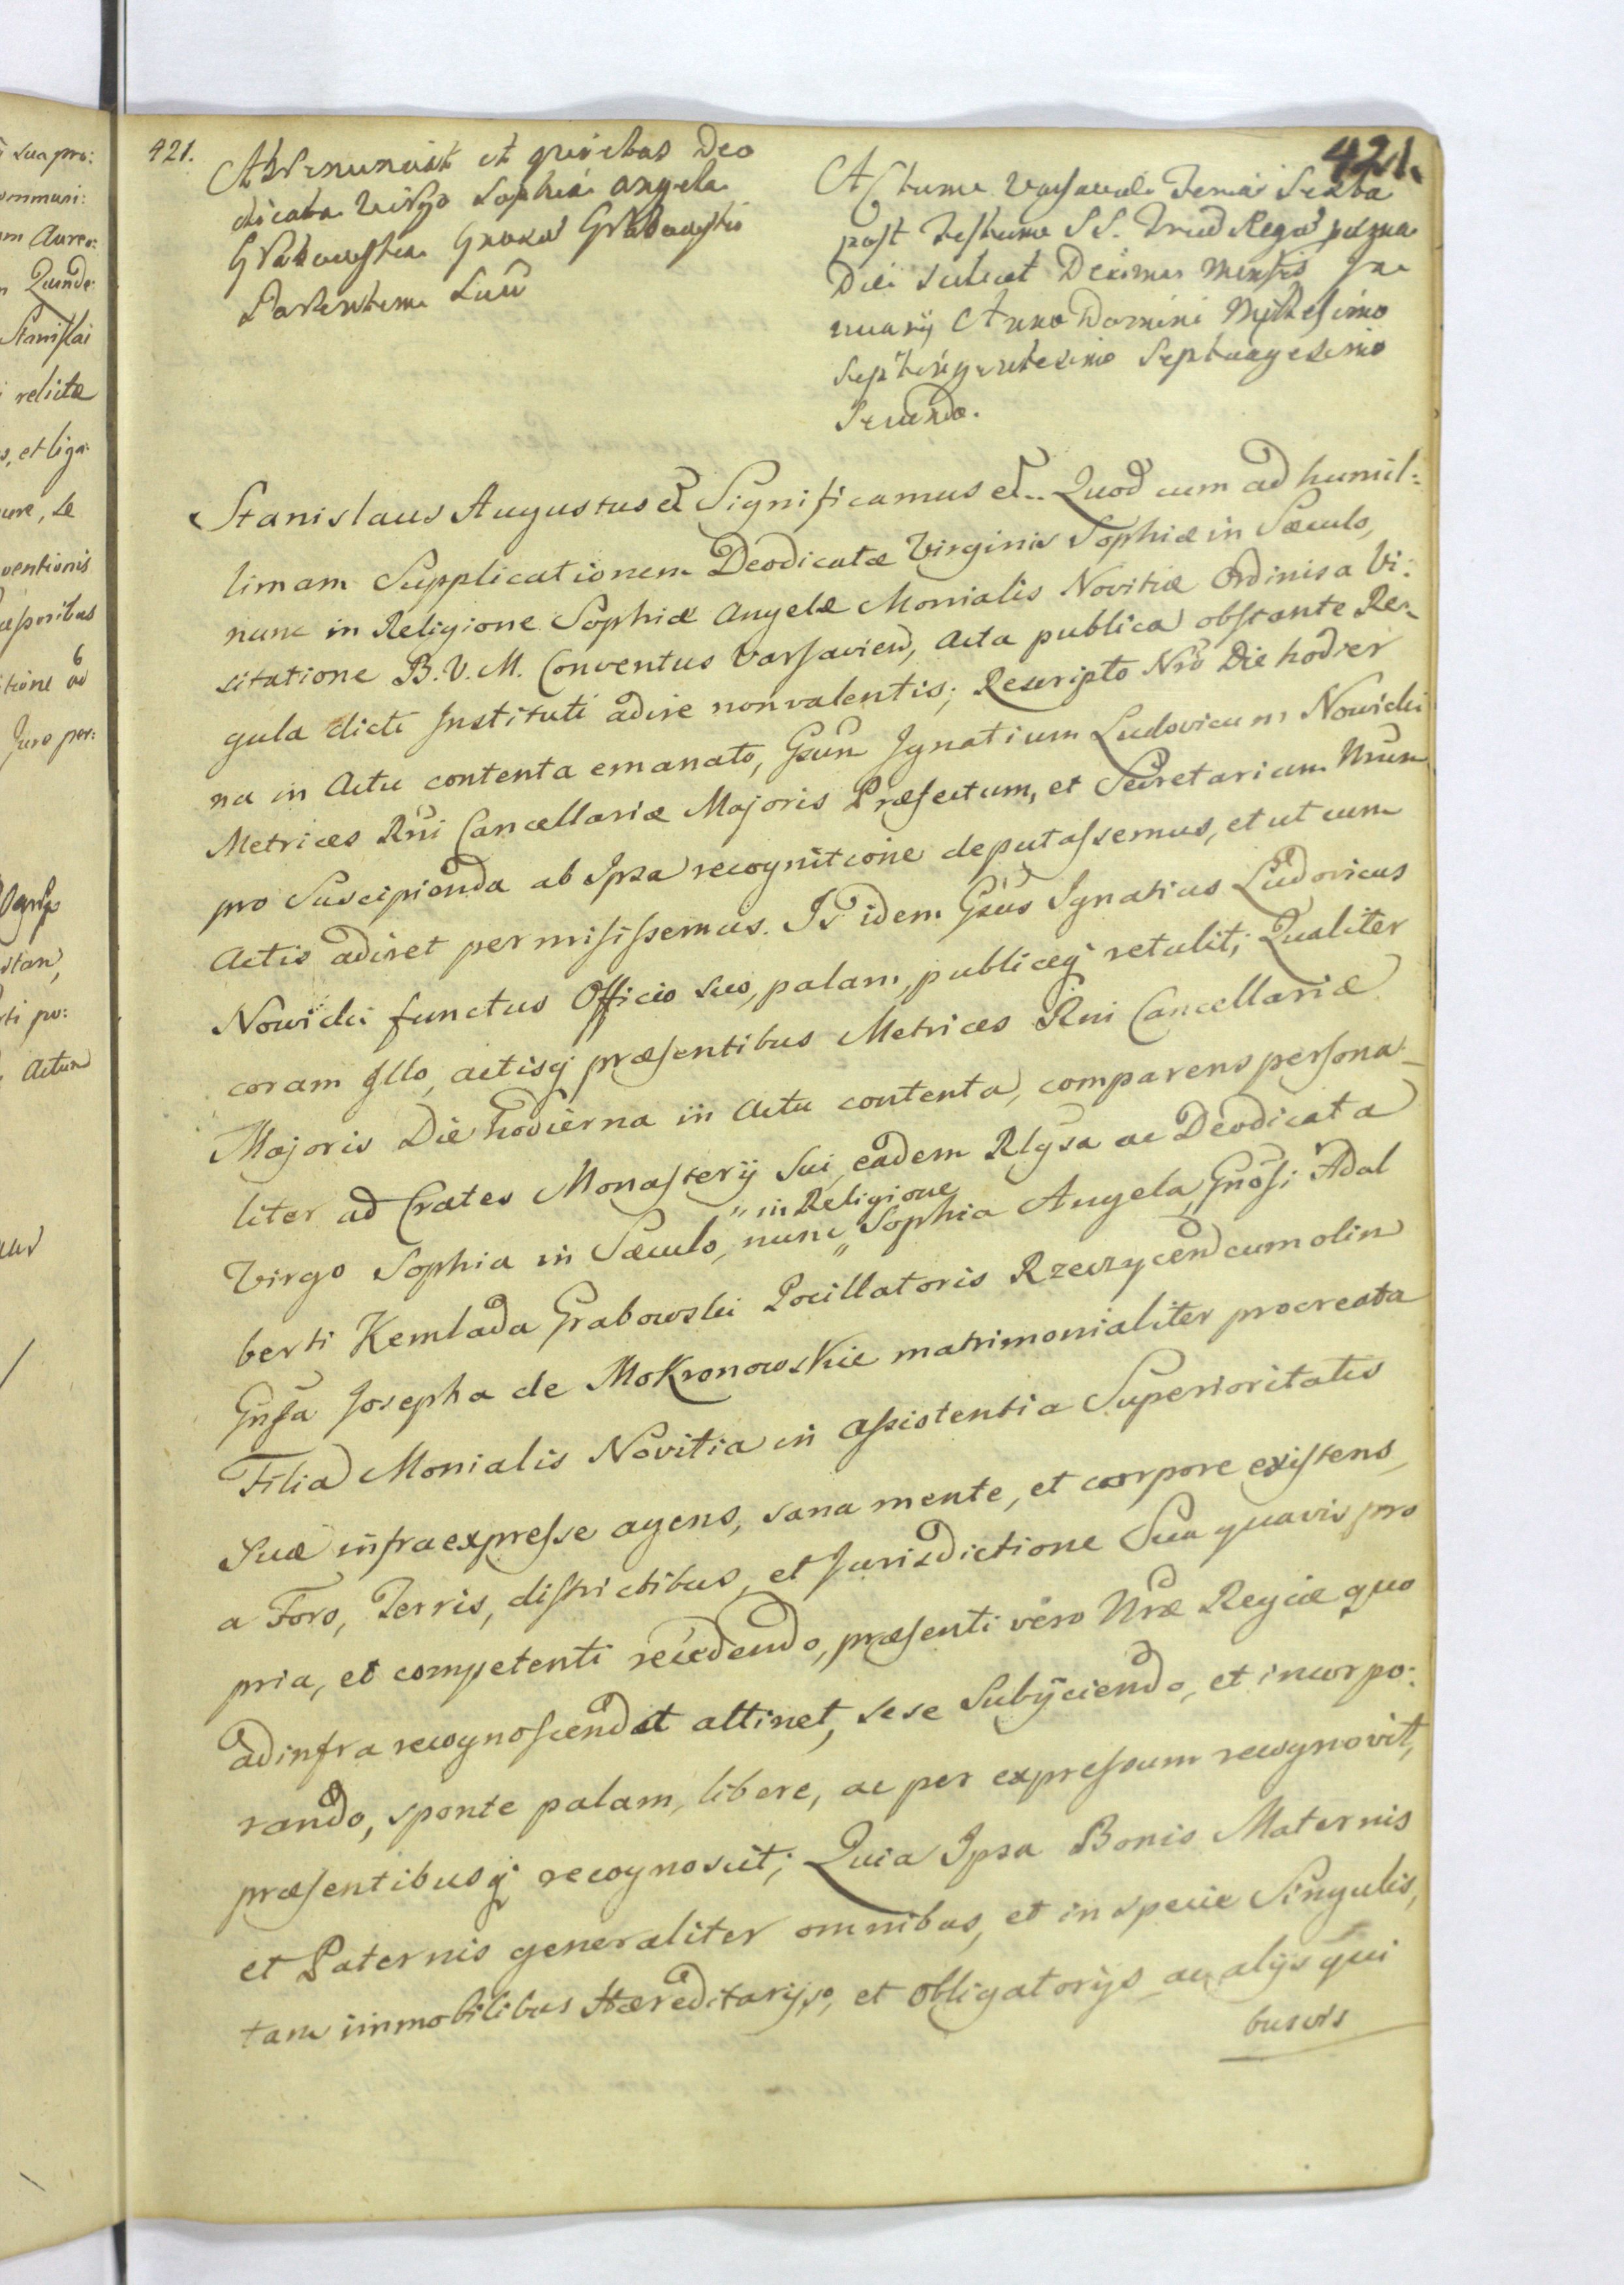 sua pro:
ommuni:
m Aureo:
n Quinde:
Stanislai
relictæ
s, et liga:
ure, se
ventionis
essoribus
itione ad
Jure per:
stan,
ti po:
Actum
421.
421.
Abrenunciat et quietat Deo
dicata Virgo Sophia Angela
Grabowska Gnosũ Grabowski
Parentem Suũ
Actum Varsaviæ Feria Sexta
post Festum SS. Triũ Regũ proxima
Die scilicet Decima Mensis Ja
nuarij Anno Domini Millesimo
Septingentesimo Septuagesimo
Secundo.
Stanislaus Augustus et Significamus et.. Quod cum ad humil:
limam Supplicationem Deodicatæ Virginis Sophiæ in Sæculo,
nunc in Religione Sophiæ Angelæ Monialis Novitiæ Ordinis a Vi:
sitatione B. V. M. Conventus Varsavien, Acta publica obstante Re
gula dicti Instituti adire non valentis; Rescripto Nro Die hodier
na in Actu contenta emanato, Gsum Ignatium Ludovicum Nowicki
Metrices Rni Cancellariæ Majoris Præfectum, et Secretarium Nrum
pro Suscipienda ab Ipsa recognitione deputassemus, et ut cum
Actis adiret permisissemus. Is idem Gsus Ignatius Ludovicus
Nowicki functus Officio suo, palam, publiceq retulit; Qualiter
coram Illo, actisq præsentibus Metrices Rni Cancellariæ
Majoris Die hodierna in Actu contenta, comparens persona
liter ad Crates Monasterij Sui, eadem Rlgsa ac Deodicata
" in Religione
Virgo Sophia in Sæculo, nunc " Sophia Angela, Gnosi Adal
berti Kemlada Grabowski Pocillatoris Rzeczycen cum olim
Gnsa Josepha de Mokronowskie matrimonialiter procreata
Filia Monialis Novitia in assistentia Superioritatis
Suæ infraexpresse agens, sana mente, et corpore existens,
a Foro, Terris, districtibus, et Jurisdictione Sua quavis pro
pria, et competenti recedendo, præsenti vero Nræ Regiæ quo
ad infra recognoscend at attinet, sese Subijciendo, et incorpo:
rando, sponte palam, libere, ac per expressum recognovit,
præsentibusq recognoscit; Quia Ipsa Bonis Maternis
et Paternis generaliter omnibus, et in specie Singulis,
tam immobilibus Hæreditarijs, et Obligatorijs ac alijs qui
busvis